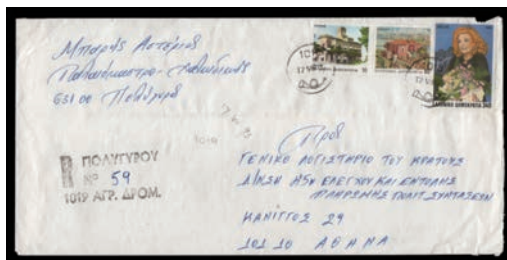 Μπαρής Αστέριος
Παλαιόκαστρο - Χαλκιδικής
631 00 Πολύγυρο
1019
Προς
R ΠΟΛΥΓΥΡΟΥ
Νº 59
1019 ΑΓΡ. ΔΡΟΜ.
ΓΕΝΙΚΟ ΛΟΓΙΣΤΗΡΙΟ ΤΟΥ ΚΡΑΤΟΥΣ
Δ/ΝΣΗ 45η ΕΛΕΓΧΟΥ ΚΑΙ ΕΝΤΟΛΗΣ
ΠΛΗΡΩΜΗΣ ΠΟΛΙΤ. ΣΥΝΤΑΞΕΩΝ
ΚΑΝΙΓΓΟΣ 29
101 10 ΑΘΗΝΑ